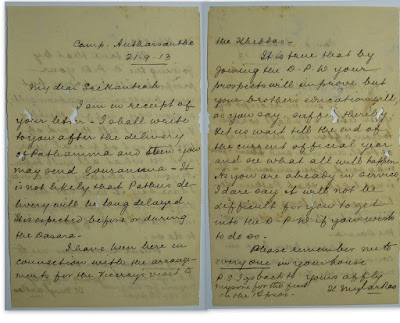 Camp.
21-9-13
My dear
I am in receipt of
your letter - I shall write
to you after the delivery
of Pathamma and then you
may send Gouramma - It
is not likely that Pathu's de-
livery will be long delayed
It is expected before or during
the Dasara -
I have been here in
connection with the arrange-
ments for the Viceroy's visit to
the Kheddas -
It is true that by
joining the D.P.W your
prospects will improve but
your brother's education will
as you say suffer thereby
Let us wait till the end of
the current official year
and see what all will happen
As you are already in service
I dare say it will not be
difficult for you to get
into the D.P.W if you wish
to do so.
Please remember me to
everyone in your house
P.S. I go back to yours affly
Mysore for the first